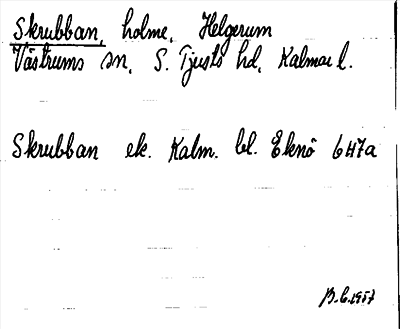 Skrubban, holme, Helgerum
Västrums sn, S. Tjusts hd, Kalmar l.
Skrubban ek. Kalm. bl. Eknö 6H7a
B.C. 1957